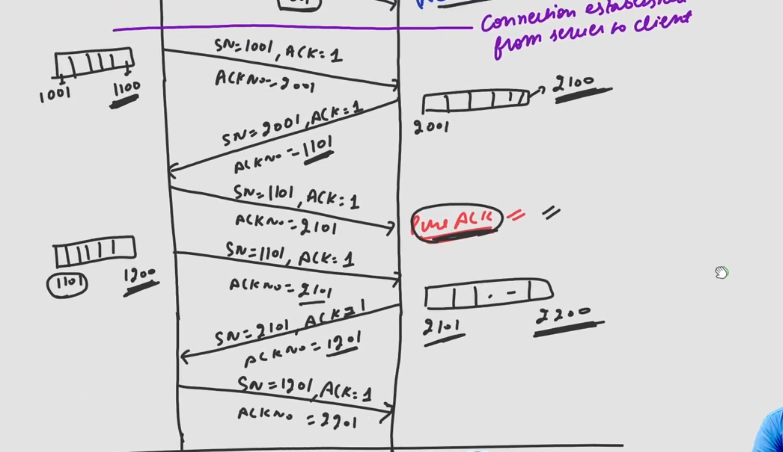 Connection establish
from server to client
SN=1001, ACK=1
ACK No=2001
1001
1100
2100
2001
SN=2001, ACK=1
ACK No=1101
SN=1101, ACK=1
ACK No=2101
Pure ACK
SN=1101, ACK=1
ACK No=2101
1101
1200
SN=2101, ACK=1
ACK No=1201
2101
2200
SN=1201, ACK=1
ACK No=2201